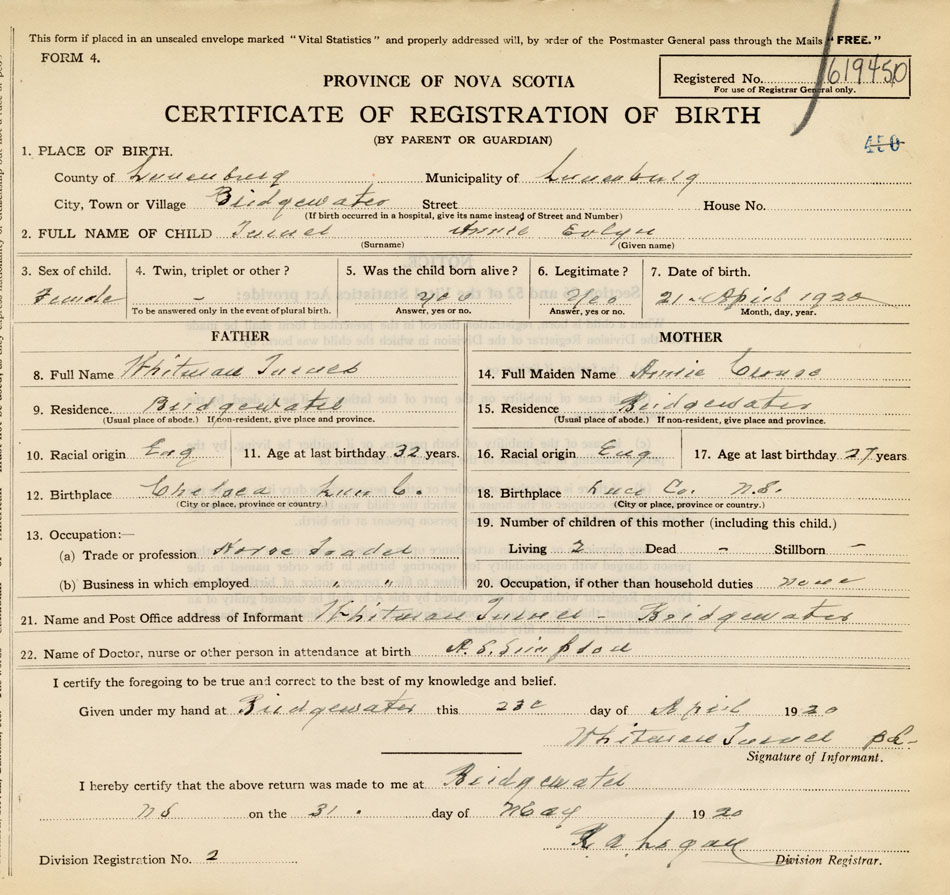 This form if placed in an unsealed envelope marked "Vital Statistics" and properly addressed will, by order of the Postmaster General pass through the Mails "FREE."
FORM 4.
Registered No. 619450
For use of Registrar General only.
PROVINCE OF NOVA SCOTIA
CERTIFICATE OF REGISTRATION OF BIRTH
(BY PARENT OR GUARDIAN)
450
1. PLACE OF BIRTH.
County of Lunenburg Municipality of Lunenburg
City, Town or Village Bridgewater Street House No.
(If birth occurred in a hospital, give its name instead of Street and Number)
2. FULL NAME OF CHILD Turner Annie Evlyn
(Surname) (Given name)
3. Sex of child. 4. Twin, triplet or other? 5. Was the child born alive? 6. Legitimate? 7. Date of birth.
Female - yes Yes 21 - April 1920
To be answered only in the event of plural birth. Answer, yes or no. Answer, yes or no. Month, day, year.
FATHER MOTHER
8. Full Name Whitman Turner 14. Full Maiden Name Annie Crouse
9. Residence. Bridgewater 15. Residence Bridgewater
(Usual place of abode.) If non-resident, give place and province. (Usual place of abode.) If non-resident, give place and province.
10. Racial origin Eng 11. Age at last birthday 32 years. 16. Racial origin Eng 17. Age at last birthday 27 years
12. Birthplace Chelsea Lun C. 18. Birthplace Co. N.S.
(City or place, province or country.) (City or place, province or country.)
13. Occupation:— 19. Number of children of this mother (including this child.)
(a) Trade or profession Horse Trader Living 2 Dead - Stillborn -
(b) Business in which employed " " 20. Occupation, if other than household duties none
21. Name and Post Office address of Informant Whitman Turner - Bridgewater
22. Name of Doctor, nurse or other person in attendance at birth
I certify the foregoing to be true and correct to the best of my knowledge and belief.
Given under my hand at Bridgewater this day of April 1920
Whitman Turner
Signature of Informant.
I hereby certify that the above return was made to me at Bridgewater
NS on the 31 day of May 1920
R A Logan
Division Registration No. 2 Division Registrar.